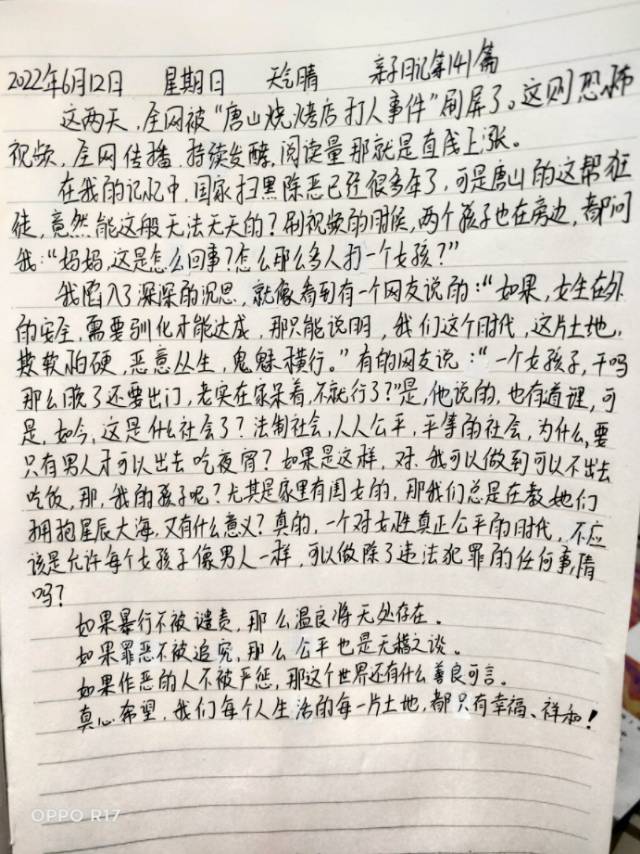 2022年6月12日 星期日 天气晴 亲子日记第141篇
这两天,全网被“唐山烧烤店打人事件”刷屏了。这则恐怖
视频,全网传播,持续发酵,阅读量那就是直线上涨。
在我的记忆中,国家扫黑除恶已经很多年了,可是唐山的这帮狂
徒,竟然能这般无法无天的?刷视频的时候,两个孩子也在旁边,都问
我:“妈妈,这是怎么回事?怎么那么多人打一个女孩?”
我陷入了深深的沉思,就像看到有一个网友说的:“如果,女生在外
的安全,需要驯化才能达成,那只能说明,我们这个时代,这片土地,
欺软怕硬,恶意丛生,鬼魅横行。”有的网友说:“一个女孩子,干吗
那么晚了还要出门,老实在家呆着,不就行了?”是,他说的,也有道理,可
是,如今,这是什么社会了?法制社会,人人公平,平等的社会,为什么,要
只有男人才可以出去吃夜宵?如果是这样,对,我可以做到可以不出去
吃饭,那,我的孩子呢?尤其是家里有闺女的,那我们总是在教她们
拥抱星辰大海,又有什么意义?真的,一个对女性真正公平的时代,不应
该是允许每个女孩子像男人一样,可以做除了违法犯罪的任何事情
吗?
如果暴行不被谴责,那么温良将无处存在。
如果罪恶不被追究,那么公平也是无稽之谈。
如果作恶的人不被严惩,那这个世界还有什么善良可言。
真心希望,我们每个人生活的每一片土地,都只有幸福、祥和!
OPPO R17